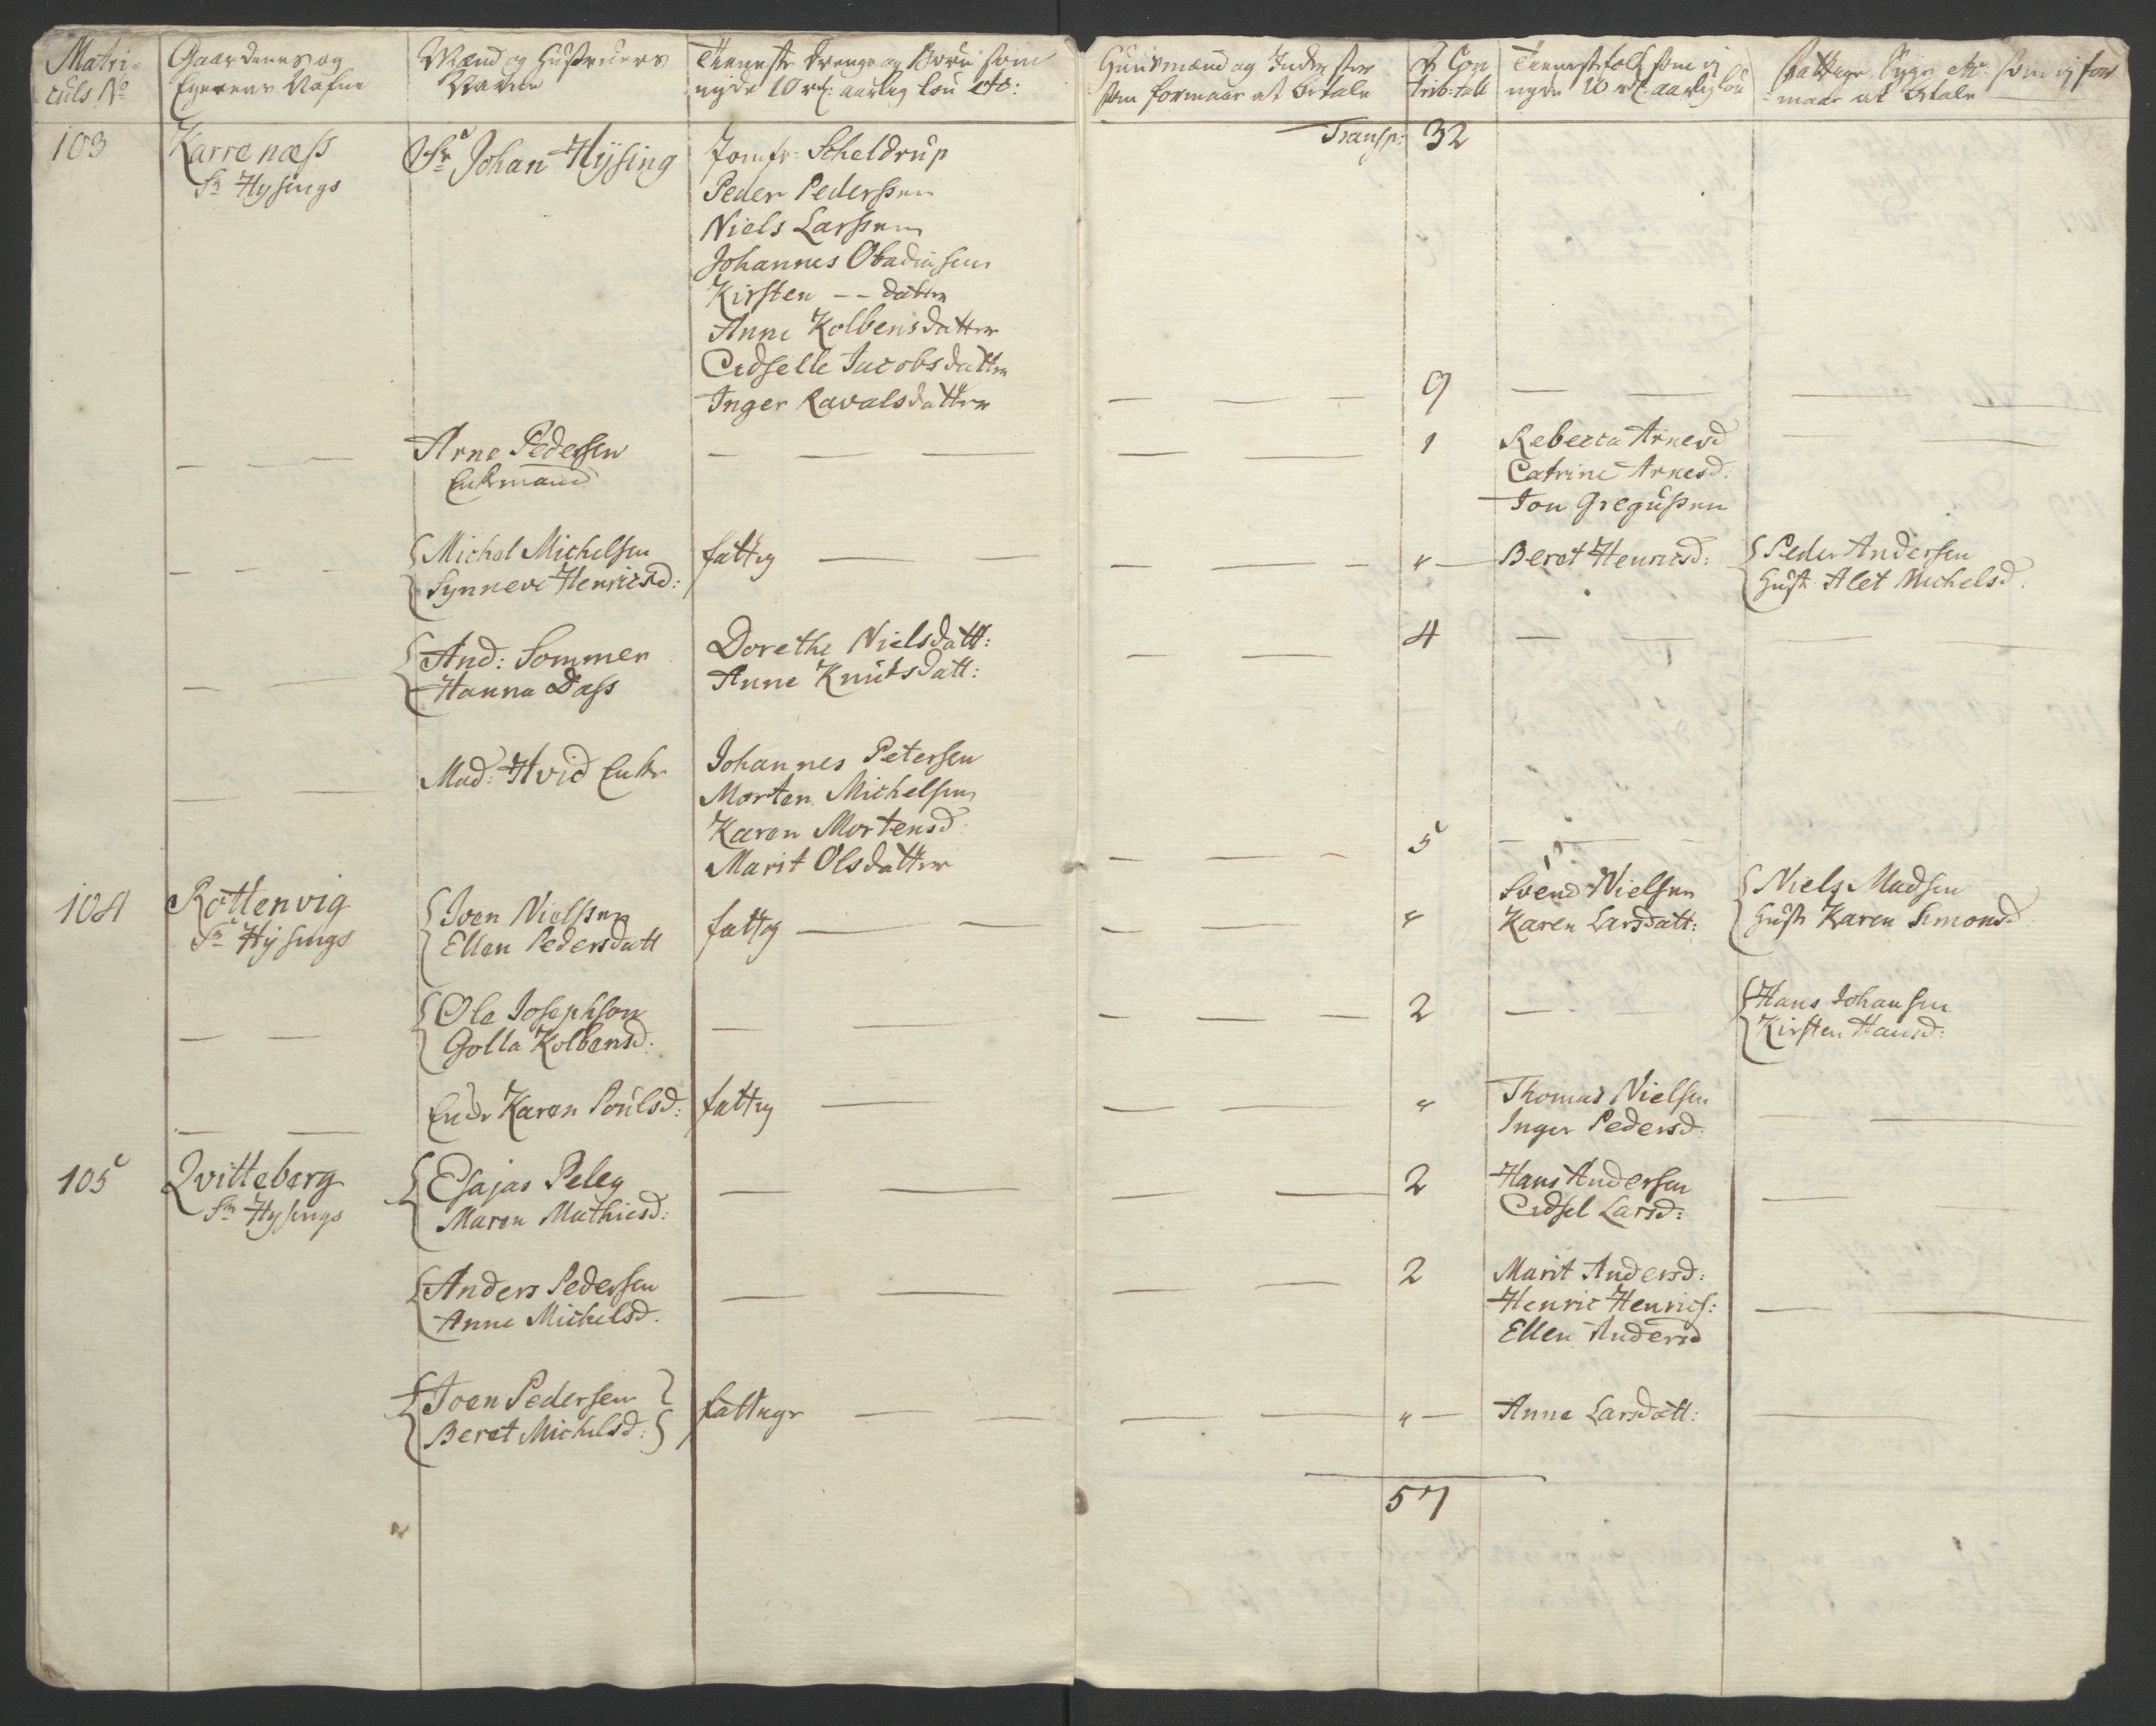 Matri-
culs No
Gaardenes og
Eyerens Nafne
Mænd og Hustruers
Navne
Tieneste drenge og Børn som
nyde 10 rd: aarlig løn etc:
Huusmænd og Inderster
som formaar at betale
Con
trib: tall
Tienestefolk som ej
nyde 10 rd aarlig løn
Fattige, Syge etc: som ej for
maar at betale
103
Karrenæss
Sr Hysings
Sr Johan Hÿsing
Jomfr: Scheldrup
Transp: 32
Peder Pederssen
Niels Larssen
Johannes Obadiasen
Kirsten -- datter
Anne Kolbensdatter
Cidselle Jacobsdatter
Inger Ravalsdatter
— — — 9 — — — —
— — — Arne Pedersen
Enkemand
— — — — — — 1 Rebecca Arnesd
Catrine Arnesd.
Jon Gregussen
— — — Michel Michelsen
Synneve Henricsd:
fattig — — — — — " — Beret Henricsd:
Peder Andersen
Hust. Alet Michelsd.
— — And: Sommer
Hanna Dass
Dorethe Nielsdatt:
Anne Knutsdatt:
— — 4 — — —
— — Mad: Hvid Enke
Johannes Petersen
Morten Michelsen
Karen Mortensd:
Marit Olsdatter
— — — 5 — — —
104
Rottenvig
Sr Hÿsings
Joen Nielssen
Ellen Pedersdatt
fattig — — — — "
Svend Nielsen
Karen Larsdatt:
Niels Madsen
Hust Karen Simonsd
— — Ole Josephson
Golla Kolbensd:
— — — — — 2 — —
Hans Johansen
Kirsten Hansd:
— — Enke Karen Poulsd:
fattig — — — "
Thomas Nielsen
Inger Pedersd.
— —
105
Qvitteberg
Sr Hysings
Esajas Peleg
Maren Mathiesd:
— — — — 2
Hans Andersen
Cidsel Larsd:
— —
Anders Pedersen
Anne Michelsd.
— — — — 2
Marit Andersd:
Henric Henrics:
Ellen Andersd
— —
Joen Pedersen
Beret Michelsd:
fattige — — — — " —
Anne Larsdatt:
—
57